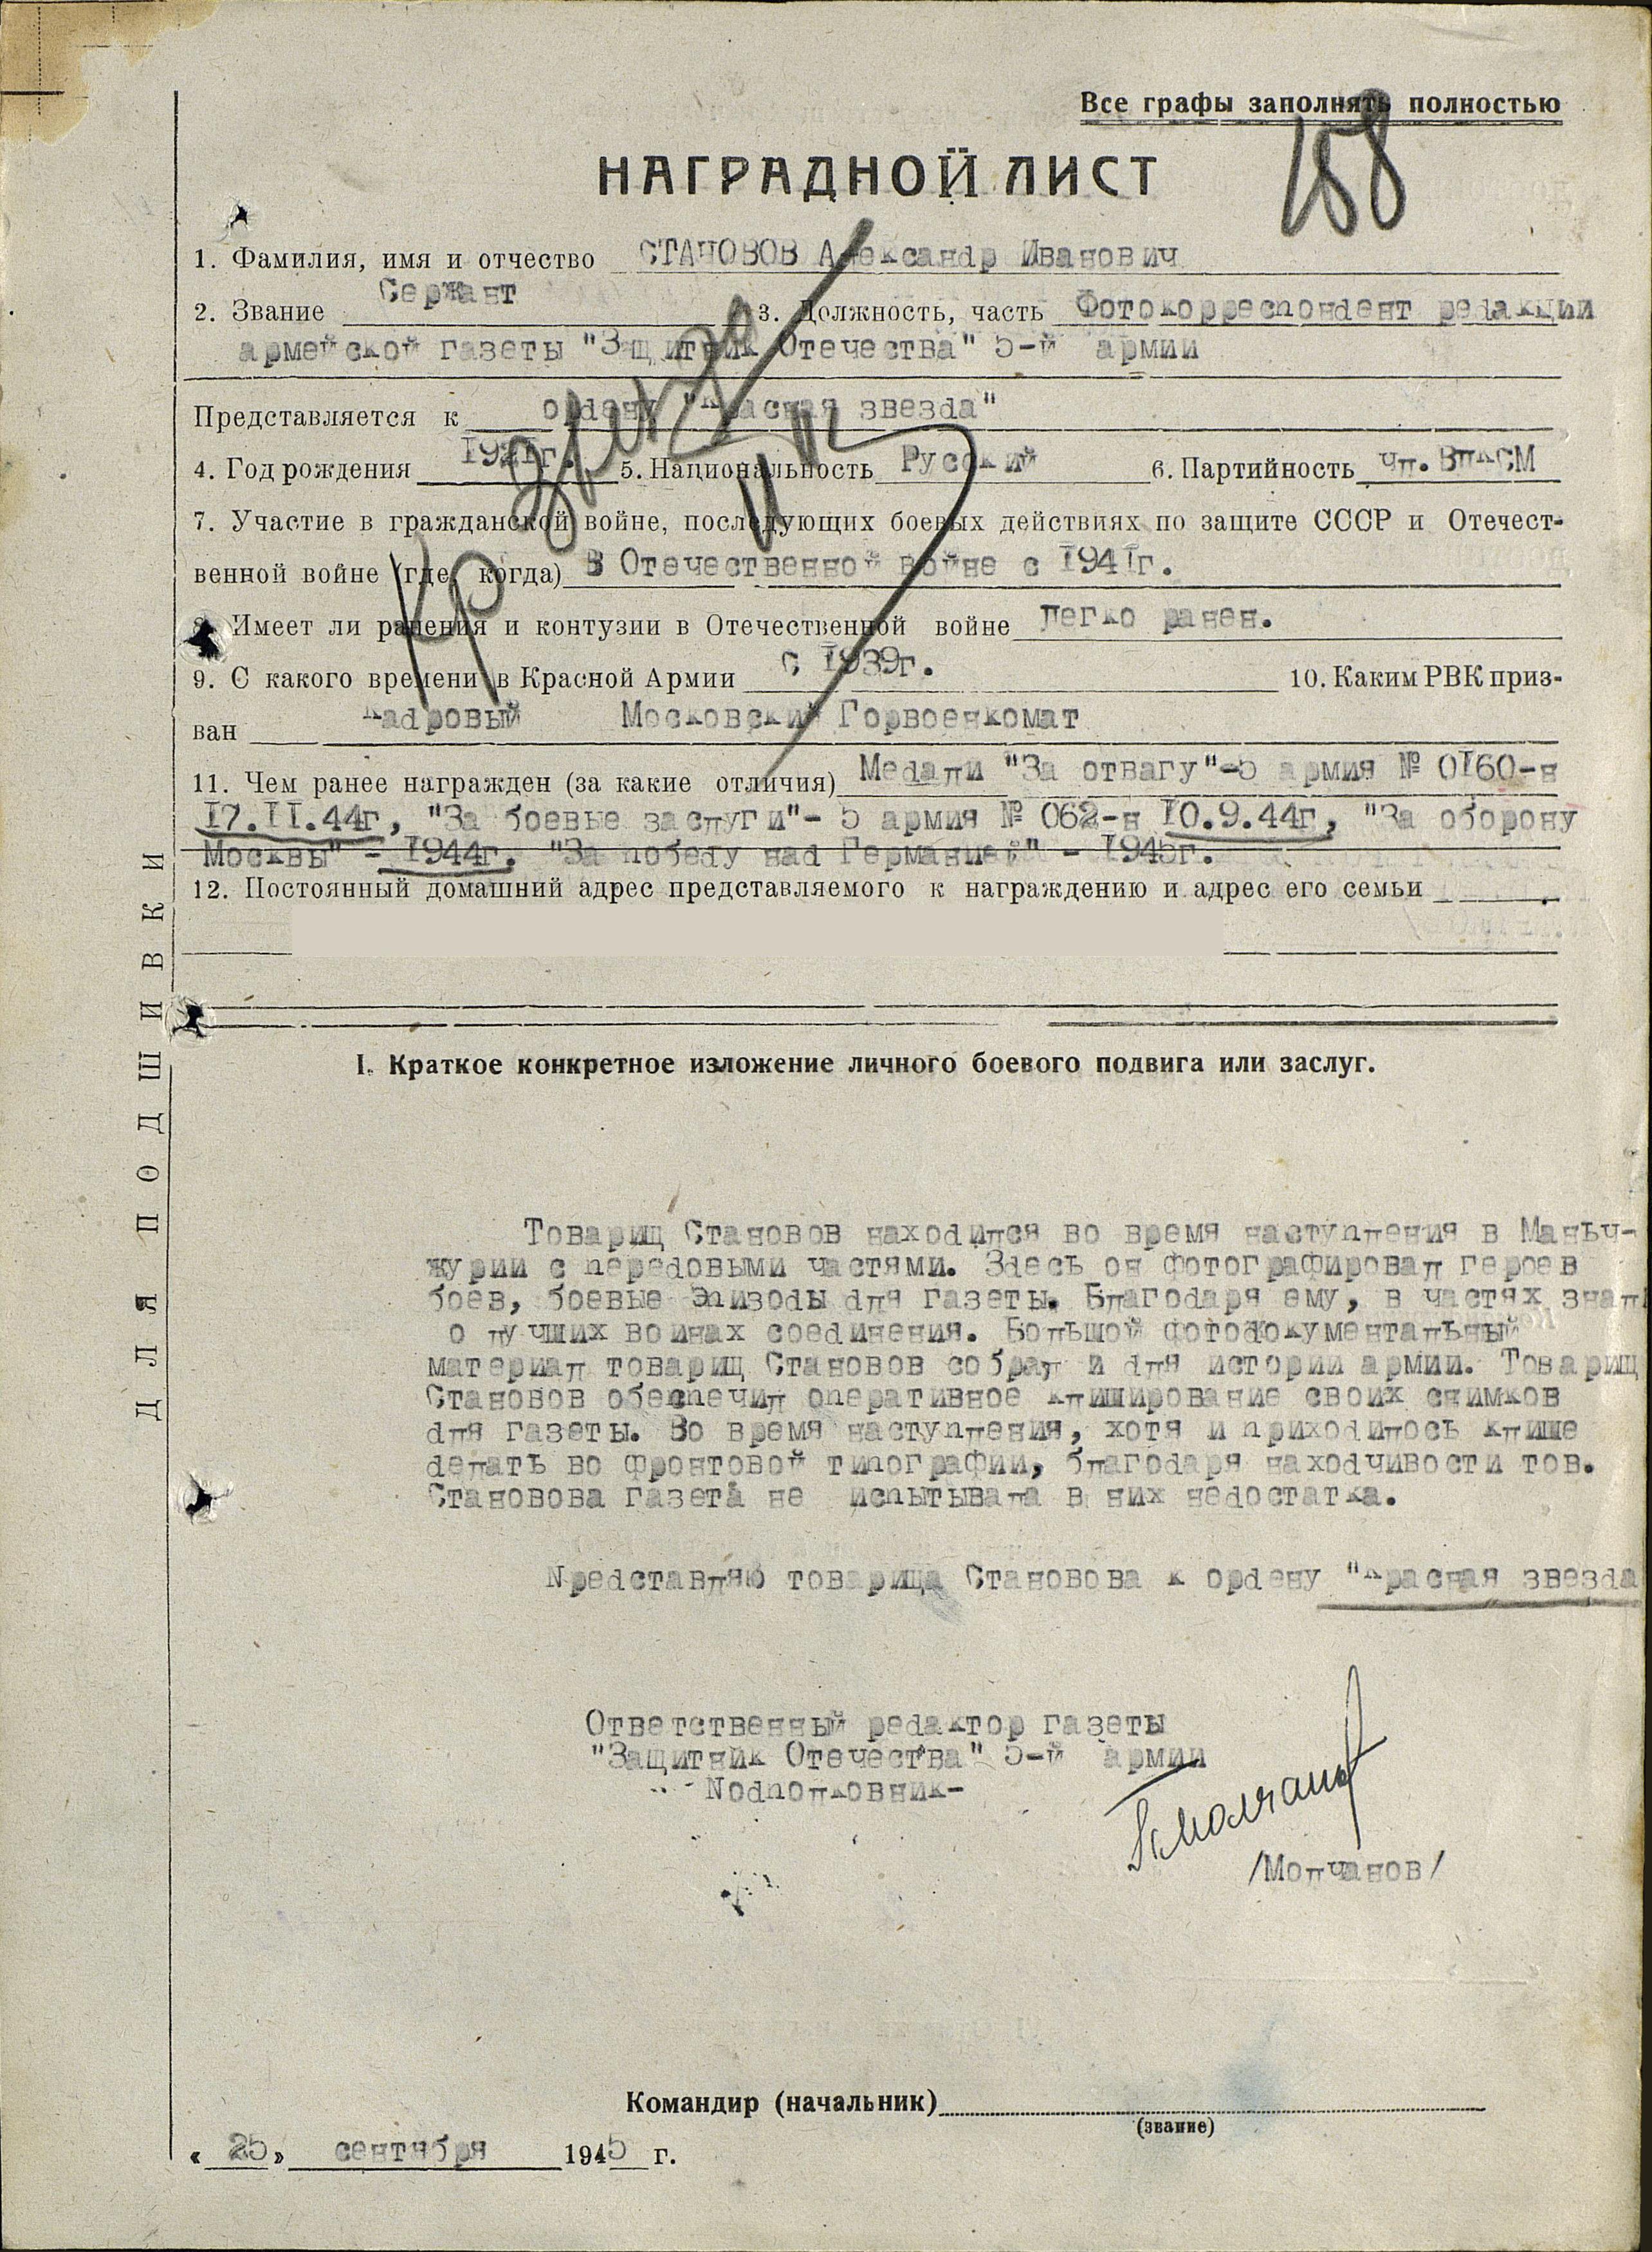 Все графы заполнять полностью
158
НАГРАДНОЙ ЛИСТ
1. Фамилия, имя и отчество СТАНОВОВ Александр Иванович
2. Звание Сержант 3. Должность, часть Фотокорреспондент редакции
армейской газеты "Защитник Отечества" 5-й армии
Представляется к ордену "Красная звезда"
4. Год рождения 1921г. 5. Национальность Русский 6. Партийность чл. ВЛКСМ
7. Участие в гражданской войне, последующих боевых действиях по защите СССР и Отечест-
венной войне (где, когда) В Отечественной войне с 1941г.
8. Имеет ли ранения и контузии в Отечественной войне легко ранен.
9. С какого времени в Красной Армии с 1939г. 10. Каким РВК приз-
ван кадровый Московский Горвоенкомат
11. Чем ранее награжден (за какие отличия) Медали "За отвагу"-5 армия № 0160-н
17.11.44г, "За боевые заслуги"- 5 армия № 062-н 10.9.44г, "За оборону
Москвы" - 1944г. "За победу над Германией" - 1945г.
12. Постоянный домашний адрес представляемого к награждению и адрес его семьи
ДЛЯ ПОДШИВКИ
I. Краткое конкретное изложение личного боевого подвига или заслуг.
Товарищ Становов находился во время наступления в Маньч-
журии с передовыми частями. Здесь он фотографировал героев
боев, боевые эпизоды для газеты. Благодаря ему, в частях знал
о лучших воинах соединения. Большой фотодокументальный
материал товарищ Становов собрал и для истории армии. Товарищ
Становов обеспечил оперативное клиширование своих снимков
для газеты. Во время наступления, хотя и приходилось клише
делать во фронтовой типографии, благодаря находчивости тов.
Становова газета не испытывала в них недостатка.
Представляю товарища Становова к ордену "Красная звезда
Ответственный редактор газеты
"Защитник Отечества" 5-й армии
Подполковник-
/Молчанов/
Командир (начальник)
(звание)
« 25 » сентября 1945 г.